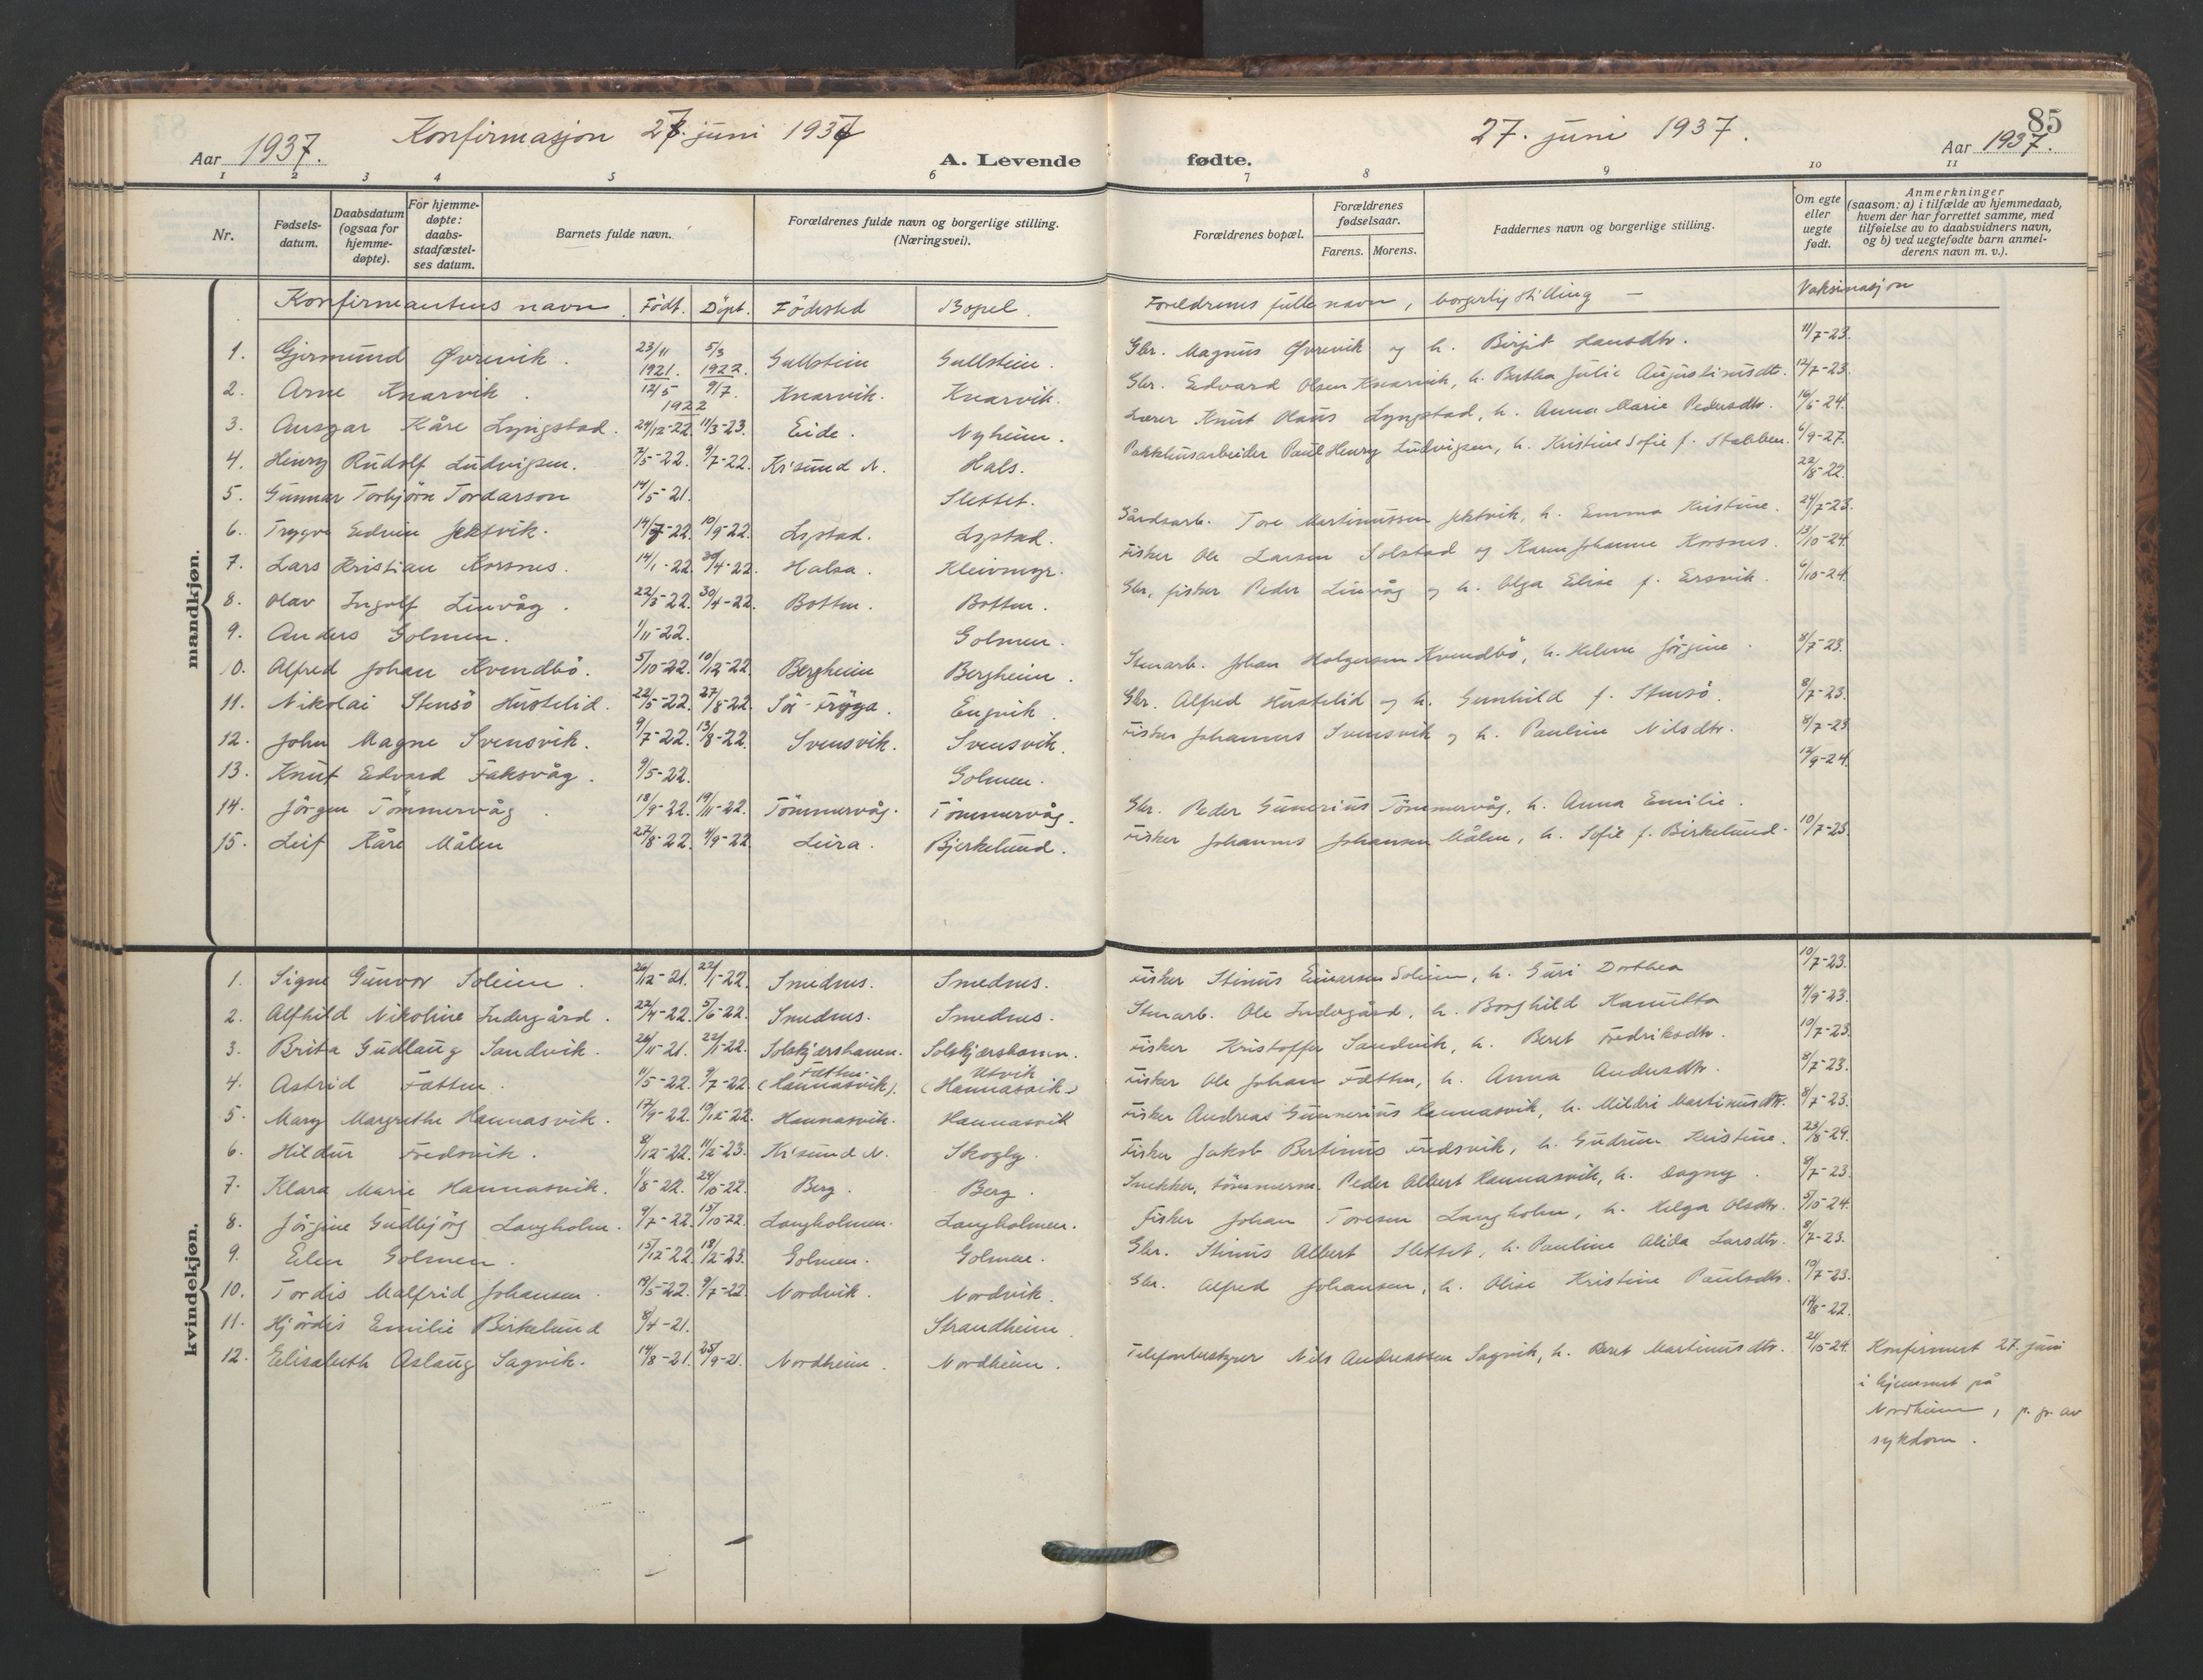 Aar 1937. Konfirmasjon 27. juni 1937 A. Levende
1 2 3 4 5 6
Nr. Fødsels-datum. Daabsdatum (ogsaa for hjemme-døpte). For hjemme-døpte: daabs-stadfæstel-ses datum. Barnets fulde navn. Forældrenes fulde navn og borgerlige stilling. (Næringsvei).
Konfirmantens navn. Født. Döpt. Födested Bopel.
mandkjøn.
1. Gjermund Øvrevik. 23/11 1921. 5/3 1922. Gullstein Gullstein.
2. Arne Knarvik. 12/5 1922 9/7. Knarvik. Knarvik.
3. Ansgar Kåre Lyngstad. 24/12-22. 11/3-23. Eide. Nyheim.
4. Henry Rudolf Ludvigsen. 7/5-22. 9/7-22. Kr'sund N. Hals.
5. Gunnar Torbjörn Tordarson 14/5-21. Slettet.
6. Trygve Edvin Jektvik. 14/7-22. 10/9-22. Lystad. Lystad.
7. Lars Kristian Korsnes. 14/1-22. 30/4-22. Halsa. Kleivmyr.
8. Olav Ingolf Linvåg. 22/3-22. 30/4-22. Botten. Botten.
9. Anders Golmen. 1/11-22. Golmen.
10. Alfred Johan Kvendbö. 5/10-22. 10/12-22. Bergheim Bergheim.
11. Nikolai Stensö Hustelid. 22/5-22. 27/8-22. Sör-Fröya. Engvik.
12. John Magne Svensvik. 9/7-22. 13/8-22. Svensvik. Svensvik.
13. Knut Edvard Faksvåg. 9/5-22. Golmen.
14. Jörgen Tömmervåg. 18/9-22. 19/11-22. Tömmervåg. Tömmervåg.
15. Leif Kåre Målen 27/8-22. Leira. Bjerkelund.
kvindekjøn.
1. Signe Gunvor Soleim. 26/12-21. 22/1-22. Smednes. Smednes.
2. Alfhild Nikoline Indergård. 22/4-22. 5/6-22. Smednes. Smednes.
3. Brita Gudlaug Sandvik. 26/11-21. 22/1-22. Solskjærshamn. Solskjærshamn.
4. Astrid Fætten. 11/5-22. 9/7-22. Fætten (Hannasvik). Utvik (Hannasvik)
5. Mary Margrethe Hannasvik. 17/9-22. 10/12-22. Hannasvik. Hannasvik
6. Hildur Fredsvik. 8/12-22. 11/2-23. Kr'sund N. Skogly.
7. Klara Marie Hannasvik. 1/8-22. 29/10-22. Berg. Berg.
8. Jörgine Gudbjörg Langholm. 9/7-22. 15/10-22. Langholmen. Langholmen.
9. Elen Golmen. 15/12-22. 18/2-23. Golmen. Golmen.
10. Tordis Malfrid Johansen. 19/5-22. 9/7-22. Nordvik. Nordvik.
11. Hjördis Emilie Birkelund 8/4-21. Strandheim.
12. Elisabeth Aslaug Sagvik. 14/8-21. 25/9-21. Nordheim. Nordheim.
85
fødte. 27. juni 1937. Aar 1937.
7 8 9 10 11
Forældrenes bopæl. Forældrenes fødselsaar. Farens. Morens. Faddernes navn og borgerlige stilling. Om egte eller uegte født. Anmerkninger (saasom: a) i tilfælde av hjemmedaab, hvem der har forrettet samme, med tilføielse av to daabsvidners navn, og b) ved uegtefødte barn anmel-derens navn m. v.).
Foreldrenes fulle navn, borgerlig stilling — Vaksinasjon
Gbr. Magnus Øvrevik og h. Birgit Hansdtr. 11/7-23.
Gbr. Edvard Olsen Knarvik, h. Bertha Julie Augustinusdtr. 12/7-23.
Lærer Knut Hans Lyngstad, h. Anna Marie Pedersdtr. 16/5-24.
Pakkhusarbeider Paul Henry Ludvigsen, h. Kristine Sofie f. Stabben. 6/9-27.
22/8-22.
Gårdsarb. Tore Martinussen Jektvik, h. Emma Kristine. 24/7-23.
Fisker Ole Larsen Solstad og Karen Johanne Korsnes. 13/10-24.
Gbr, fisker Peder Linvåg og h. Olga Elise f. Ersvik. 6/10-24.
Stenarb. Johan Holgersen Kvendbö, h. Helene Jörgine. 8/7-23.
Gbr. Alfred Hustelid og h. Gunhild f. Stensö. 8/7-23.
Fisker Johannes Svensvik og h. Pauline Nilsdtr. 8/7-23
12/9-24.
Gbr. Peder Gunerius Tömmervåg, h. Anna Emilie.
Fisker Johannes Johansen Målen, h. Sofie f. Birkelund. 10/7-23.
Fisker Stinus Einarsen Soleim, h. Guri Dorthea 10/7-23.
Stenarb. Ole Indergård, h. Borghild Kanutta 4/9-23.
Fisker Kristoffer Sandvik, h. Beret Fredriksdtr. 10/7-23.
Fisker Ole Johan Fætten, h. Anna Andersdtr. 8/7-23.
Fisker Andreas Gunnerius Hannasvik, h. Mildri Martinusdtr. 8/7-23.
Fisker Jakob Bertinus Fredsvik, h. Gudrun Kristine. 23/8-29.
Snekker, tömmerm. Peder Albert Hannasvik, h. Dagny. 8/7-23.
Fisker Johan Toresen Langholm, h. Helga Olsdtr. 5/10-24.
Gbr. Stinus Albert Slettet, h. Pauline Alida Larsdtr. 8/7-23.
Gbr. Alfred Johansen, h. Olise Kristine Paulsdtr. 10/7-23.
14/8-22.
Telefonbestyrer Nils Andreassen Sagvik, h. Beret Martinusdtr. 21/10-24. Konfirmert 27. juni
i hjemmet på
Nordheim, p. gr. av
sykdom.